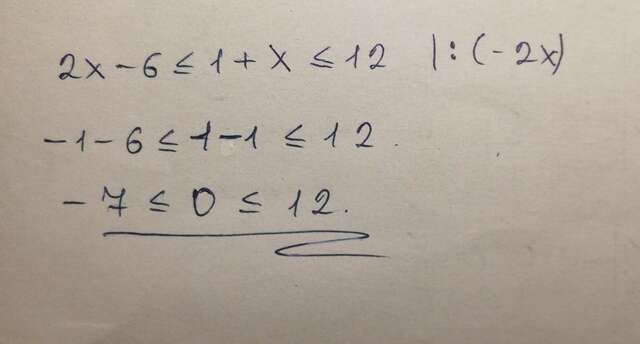 2x - 6 ≤ 1 + x ≤ 12 | : (- 2x)
- 1 - 6 ≤ 1 - 1 ≤ 12.
- 7 ≤ 0 ≤ 12.